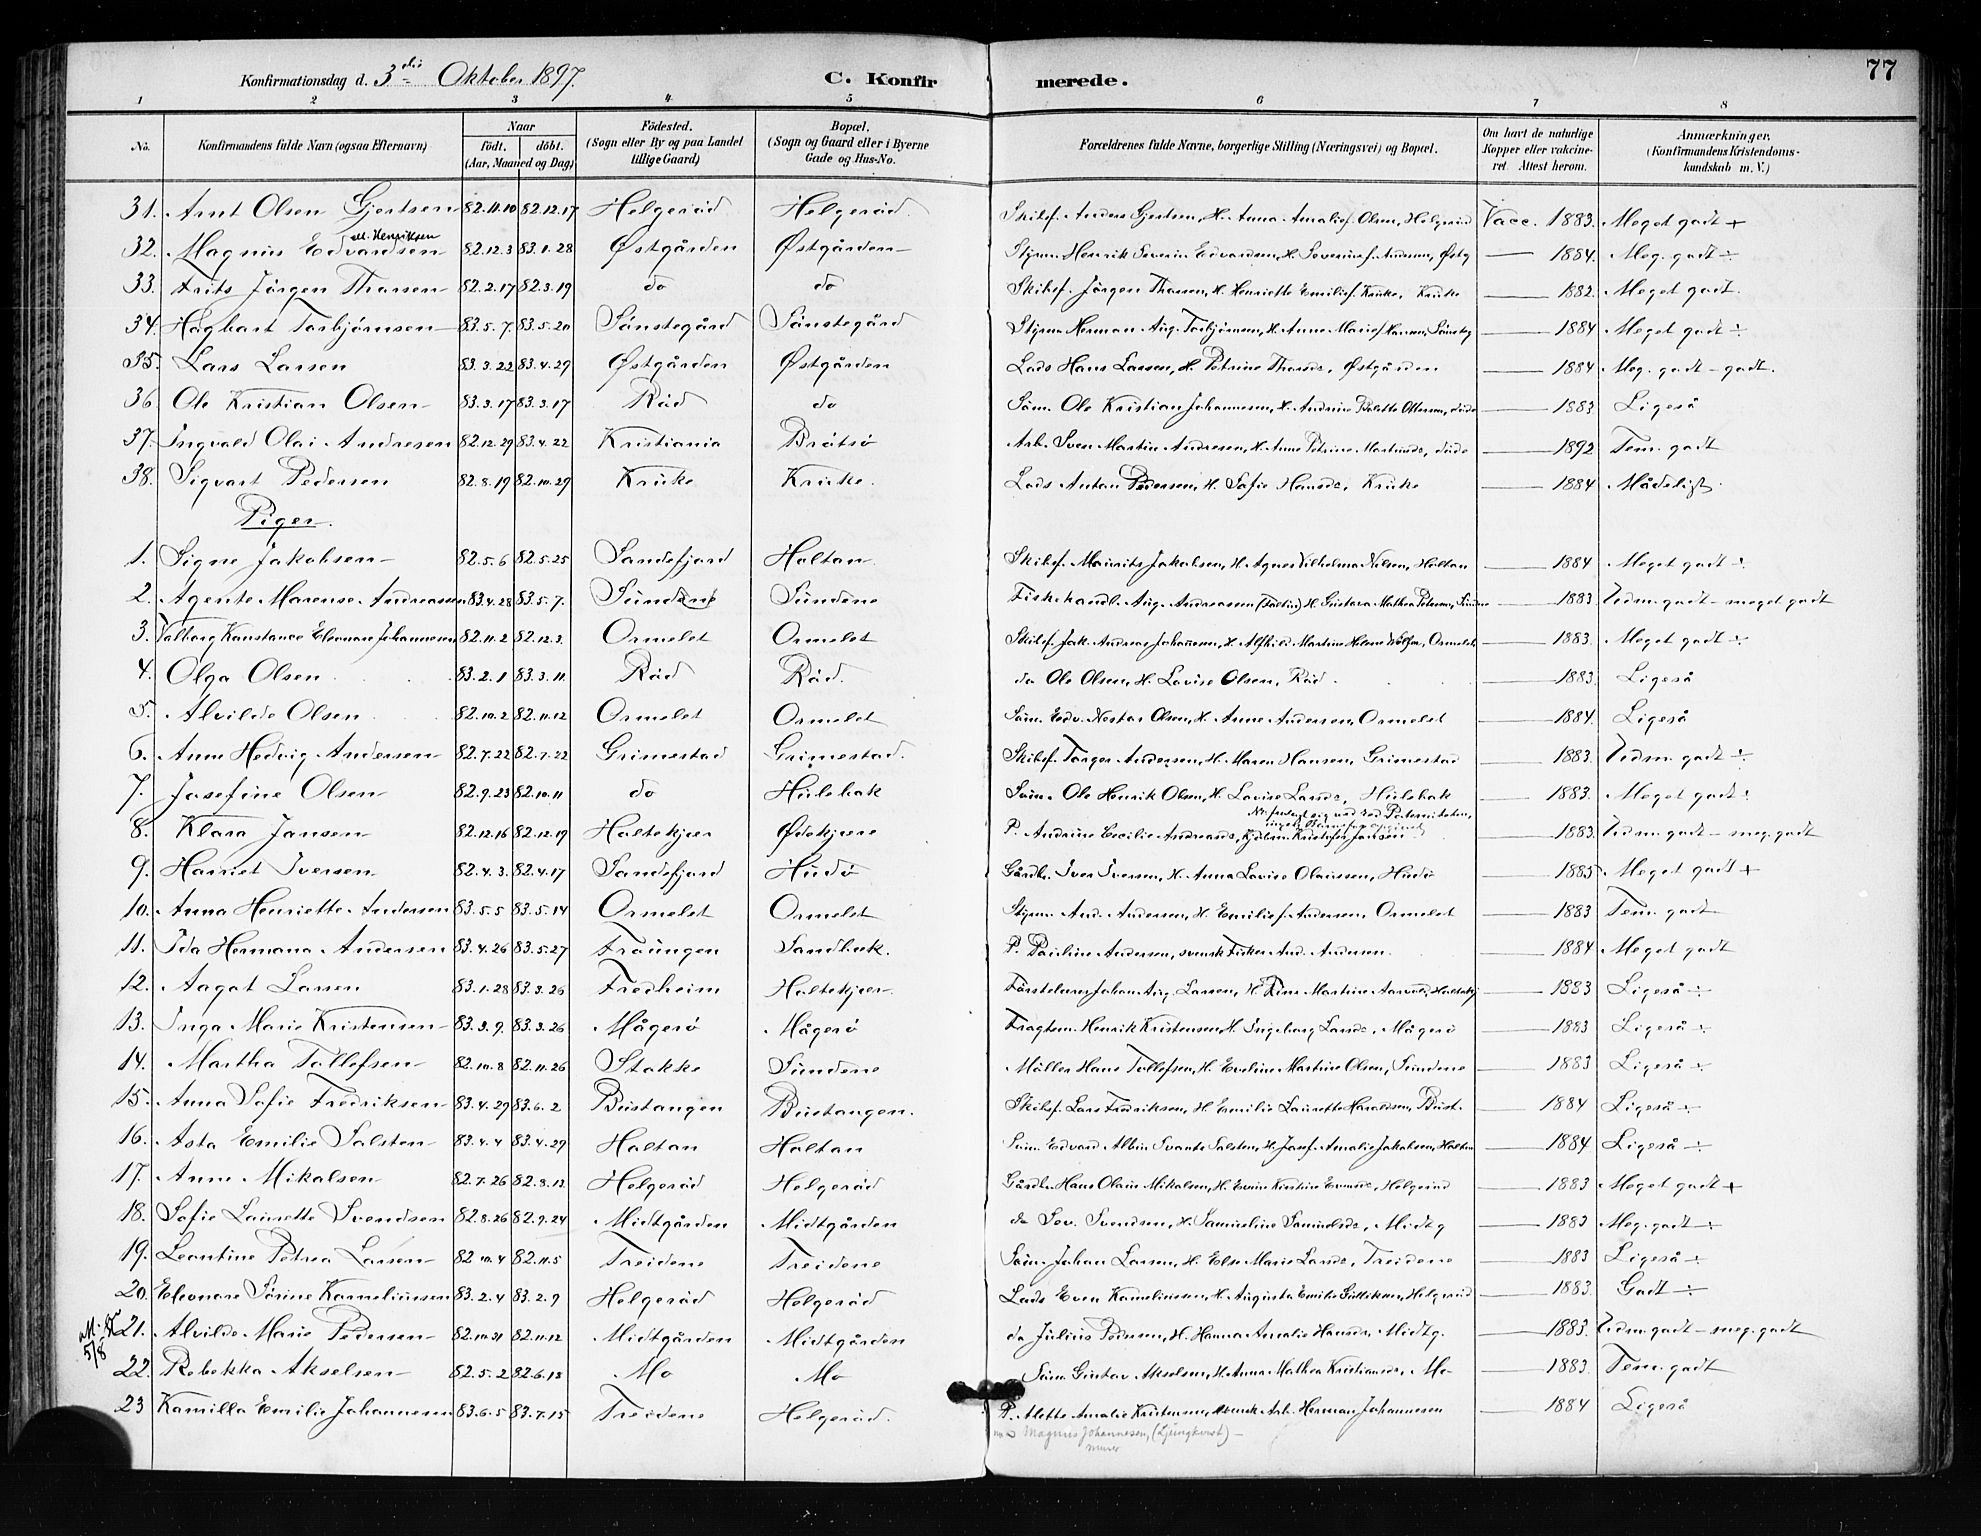 Konfirmationsdag d. 3die Oktober 1897. C. Konfirmerede. 77
1 2 3 4 5 6 7 8
No. Konfirmandens fulde Navn (ogsaa Efternavn) Naar født, døbt. (Aar, Maaned og Dag) Fødested. (Sogn eller By og paa Landet tillige Gaard) Bopæl. (Sogn og Gaard eller i Byerne Gade og Hus-No.) Forældrenes fulde Navne, borgerlige Stilling (Næringsvei) og Bopæl. Om havt de naturlige Kopper eller vakcineret. Attest herom. Anmærkninger. (Konfirmandens Kristendomskundskab m. V.)
31. Arnt Olsen Gjertsen 82.11.10 82.12.17 Helgeröd Helgeröd. Skibsf. Anders Gjertsen, H. Anna Amalie f. Olsen, Helgeröd Vacc. 1883. Meget godt +
ell. Henriksen
32. Magnus Edvardsen 82.12.3 83.1.28 Østgården Østgården Styrm. Henrik Severin Edvardsen, H. Severine f. Andersen, Østg — 1884. Meg. godt ÷
33. Frits Jörgen Thorsen 82.2.17 82.3.19 do do Skibsf. Jörgen Thorsen, H. Henriette Emilie f. Kruke, Kruke — 1882. Meget godt.
34. Hagbart Torbjörnsen 83.5.7. 83.5.20 Sönstegård Sönstegård Styrm. Herman Aug. Torbjörnsen, H. Anne Marie f. Hansen, Sönsteg — 1884 Meget godt ÷
35. Lars Larsen 83.3.22 83.4.29 Østgården Østgården Lods Hans Larsen, H. Petrine Thorsdr, Østgården — 1884 Meg. godt - godt.
36 Ole Kristian Olsen 83.3.17 83.3.17 Röd do Söm. Ole Kristian Johannesen, H. Andrine Bolette Ottersen, döde — 1883 Ligeså
37. Ingvald Olai Andresen 82.12.29 83.4.22 Kristiania Bråtsö Arb. Sven Martin Andresen, H. Anne Petrine Martinsdr, döde — 1892 Tem. godt
38. Sigvart Pedersen 82.8.19 82.10.29 Kruke Kruke. Lods Anton Pedersen, H. Sofie Hansdr, Kruke — 1884 Mådeligt.
Piger.
1. Signe Jakobsen 82.5.6 82.5.25 Sandefjord Holtan Skibsf. Maurits Jakobsen, H. Agnes Vilhelma Nilsen, Holtan — 1884 Meget godt ÷
2. Agente Marense Andreasen 83.4.28 83.5.7. Sundene Sundene Fiskehandl. Aug. Andreasen H. Gustava Mathea Petersen, Sundene — 1883 Udm. godt - meget godt
3. Valborg Konstance Eleonore Johannesen 82.11.2 82.12.3. Ormelet Ormelet Skibsf. Jak. Andreas Johannesen, H. Alfhild Martine Helene Ormelet — 1883. Meget godt ÷
4. Olga Olsen 83.2.1 83.3.11. Röd Röd. do Ole Olsen, H. Lovise Olsen, Röd. — 1883 Ligeså
5. Alvilde Olsen 82.10.2 82.11.12 Ormelet Ormelet Söm. Edv. Nestor Olsen, H. Anne Andersen, Ormelet — 1884. Ligeså
6. Anne Hedvig Andersen 82.7.22 82.7.22 Grimestad Grimestad. Skibsf. Torger Andersen, H. Maren Hansen, Grimestad — 1883. Udm. godt ÷
7. Josefine Olsen 82.9.23 82.10.11 do Hulebak Söm. Ole Henrik Olsen, H. Lovise Larsdr, Hulebak — 1883. Meget godt ÷
8. Klara Jansen 82.12.16 82.12.19 Holtekjær Østkjære P. Andrine Cecilie Andreasdr, Kristofer Jansen — 1883. Udm. godt - meg. godt
9. Harriet Iversen 82.4.3. 82.4.17 Sandefjord Hudö Gårdbr. Iver Iversen, H. Anna Lovise Olaissen, Hudö — 1885 Meget godt +
10. Anna Henriette Andersen 83.5.5 83.5.14 Ormelet Ormelet Styrm. And. Andersen, H. Emilie f. Andersen, Ormelet — 1883 Tem. godt
11. Ida Hermana Andersen 83.4.26 83.5.27 Traungen Sandbæk. P. Pauline Andersen, svensk Fisker And. Andersen. — 1884 Meget godt
12. Aagot Larsen 83.1.28 83.3.26 Fredheim Holtekjær Johan Aug. Larsen, H. Martine Holtekj — 1883 Ligeså ÷
13. Inga Marie Kristensen 83.3.9. 83.3.26 Mågerö Mågerö Fragtem. Henrik Kristensen, H. Ingeborg Larsdr, Mågerö — 1883 Ligeså ÷
14. Martha Tollefsen 82.10.8 82.11.26 Stokke Sundene Möller Hans Tollefsen, H. Eveline Martine Olsen, Sundene — 1883 Ligeså ÷
15. Anna Sofie Fredriksen 83.4.29 83.6.2 Bustangen Bustangen. Skibsf. Lars Fredriksen, H. Emilie Laurette Haraldsen, Bust. — 1884 Ligeså ÷
16. Asta Emilie Salsten 83.4.4 83.4.29 Holtan Holtan Söm. Edvard Albin Svante Salsten, H. Josef. Amalie Jakobsen, Holtan — 1884 Ligeså ÷
17. Anne Mikalsen 82.7.26 82.8.13 Helgeröd Helgeröd Gårdbr. Hans Olaus Mikalsen, H. Kirstine Helgeröd — 1883 Meget godt +
18. Sofie Laurette Svendsen 82.8.26 82.9.24 Midtgården Midtgården do Sev. Svendsen, H. Samueline Samuelsdr, Midtg — 1883 Meg. godt ÷
19. Leontine Petrea Larsen 82.10.4 82.11.5 Treidene Treidene Söm. Johan Larsen, H. Else Marie Larsdr, Treidene — 1883 Ligeså ÷
20. Eleonore Sörine Korneliusen 83.2.4 83.2.9 Helgeröd Helgeröd Lods Even Korneliusen, H. Augusta Emilie Gulliksen, Helgeröd — 1883. Godt ÷
21. Alvilde Marie Pedersen 82.10.31 82.11.12 Midtgården Midtgården do Julius Pedersen, H. Hanna Amalie Hansdr, Midtg. — 1883. Udm. godt - meg. godt
5/8
22. Rebekka Akselsen 82.5.2 82.6.18 Mo Mo Söm. Gustav Akselsen, H. Anne Mathea Kristiansdr, Mo — 1883. Tem. godt
23 Kamilla Emilie Johannesen 83.6.5 83.7.15 Treidene Helgeröd. P. Alette Amalie Kristensen, svensk Arb. Herman Johannesen — 1884 Ligeså
Magnus Johannesen, (Ljungkvist) -
murer